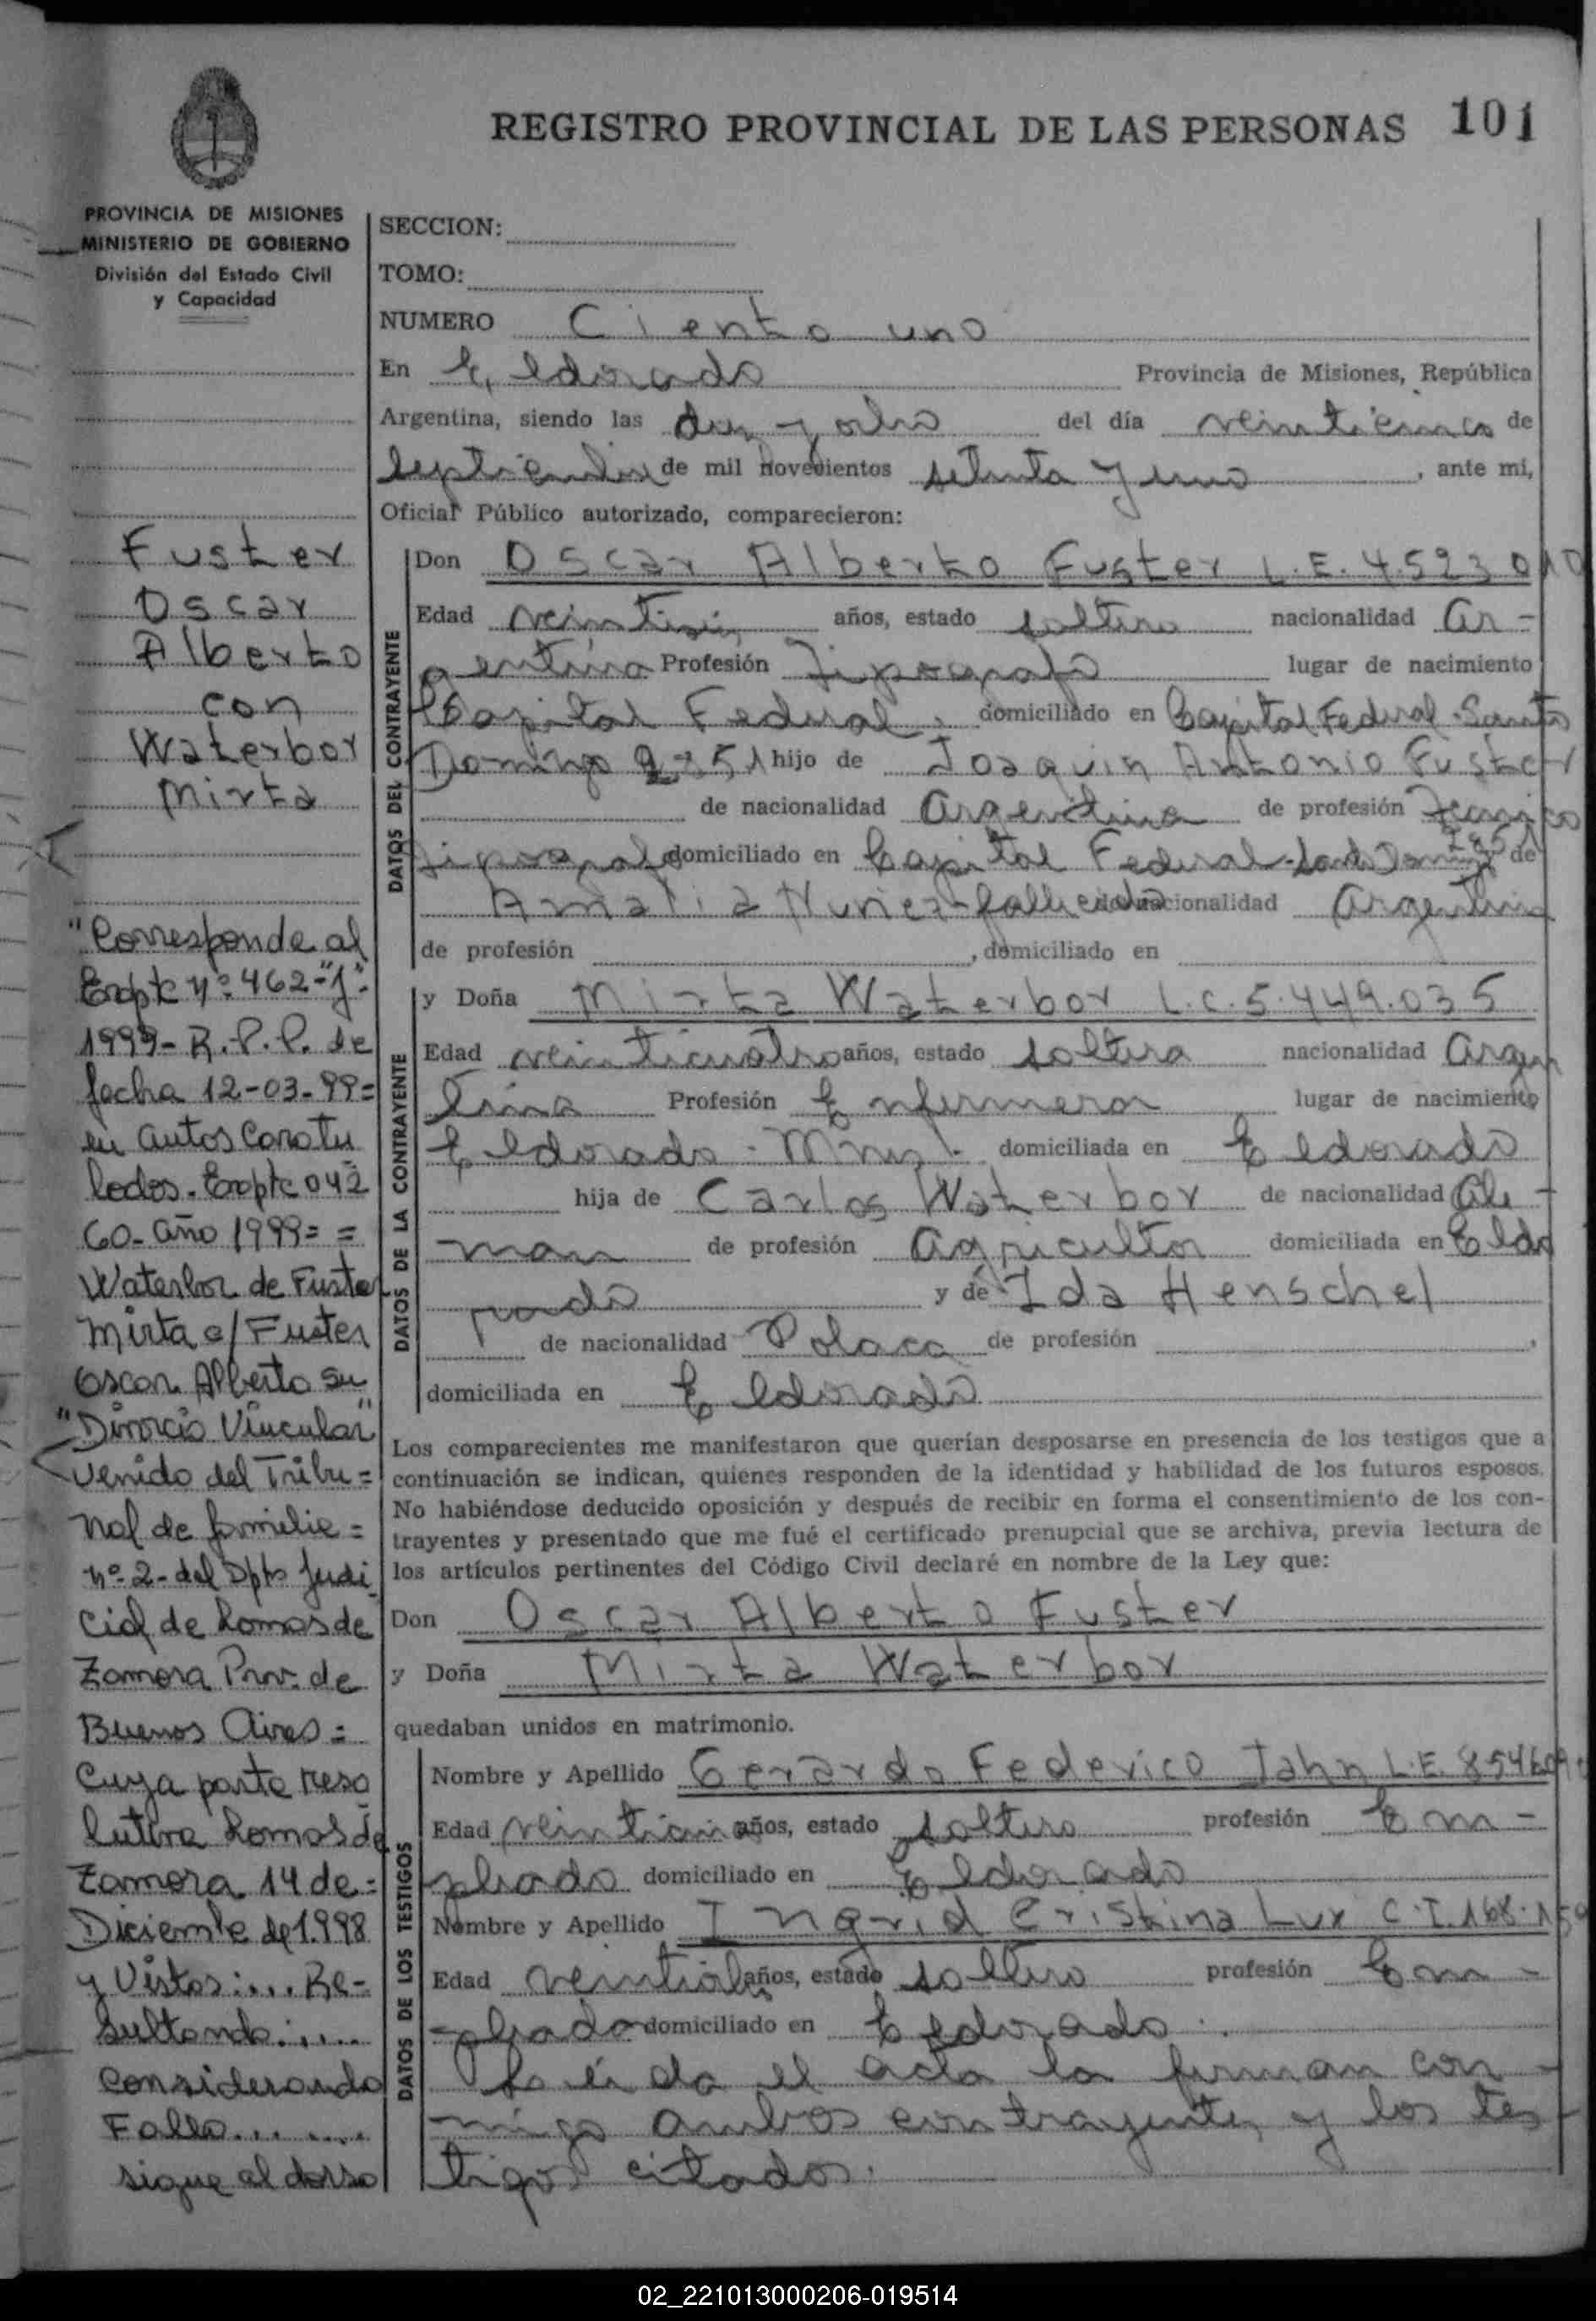 REGISTRO PROVINCIAL DE LAS PERSONAS 101
PROVINCIA DE MISIONES
MINISTERIO DE GOBIERNO
División del Estado Civil
y Capacidad
Fuster
Oscar
Alberto
con
Waterbor
Mirta
"Corresponde al
Expte Nº 462-"J"-
1999- R.P.P. de
fecha 12-03-99=
en autos caratu
lados. Expte 042
60- año 1999= =
Waterbor de Fuster
Mirta c/ Fuster
Oscar Alberto su
"Divorcio Vincular"
venido del Tribu=
nal de familia=
nº 2- del Dpto Judi
cial de Lomas de
Zamora Prov. de
Buenos Aires=
Cuya parte reso
lutiva Lomas de
Zamora 14 de=
Diciembre de 1.998
y Vistos:... Re-
sultando:....
Considerando
Fallo.......
sigue al dorso
SECCION:
TOMO:
NUMERO Ciento uno
En Eldorado Provincia de Misiones, República
Argentina, siendo las diez y ocho del día veinticinco de
septiembre de mil novecientos setenta y uno, ante mí,
Oficial Público autorizado, comparecieron:
DATOS DEL CONTRAYENTE
Don Oscar Alberto Fuster L.E. 4.523.010
Edad años, estado soltero nacionalidad Ar-
gentina Profesión Tipografo lugar de nacimiento
Capital Federal, domiciliado en Capital Federal-Santo
Domingo 2851 hijo de Joaquin Antonio Fuster
de nacionalidad Argentina de profesión Tecnico
Tipografo domiciliado en Capital Federal-Santo Domingo 2851 de
Amalia Nuñez-fallecida de nacionalidad Argentina
de profesión , domiciliado en
DATOS DE LA CONTRAYENTE
y Doña Mirta Waterbor L.C. 5.449.035
Edad veinticuatro años, estado soltera nacionalidad Argen
tina Profesión Enfermera lugar de nacimiento
Eldorado - Mnes. domiciliada en Eldorado
hija de Carlos Waterbor de nacionalidad Ale-
man de profesión Agricultor domiciliada en Eldo
rado y de Ida Henschel
de nacionalidad Polaca de profesión ,
domiciliada en Eldorado
Los comparecientes me manifestaron que querían desposarse en presencia de los testigos que a
continuación se indican, quienes responden de la identidad y habilidad de los futuros esposos.
No habiéndose deducido oposición y después de recibir en forma el consentimiento de los con-
trayentes y presentado que me fué el certificado prenupcial que se archiva, previa lectura de
los artículos pertinentes del Código Civil declaré en nombre de la Ley que:
Don Oscar Alberto Fuster
y Doña Mirta Waterbor
quedaban unidos en matrimonio.
DATOS DE LOS TESTIGOS
Nombre y Apellido Gerardo Federico Jahn L.E.
Edad años, estado soltero profesión Em-
pleado domiciliado en Eldorado
Nombre y Apellido Ingrid Cristina Lux C.I.
Edad años, estado soltero profesión Em-
pleada domiciliado en Eldorado.
Leída el acta la firman con-
migo ambos contrayentes y los tes-
tigos citados.
02_221013000206-019514